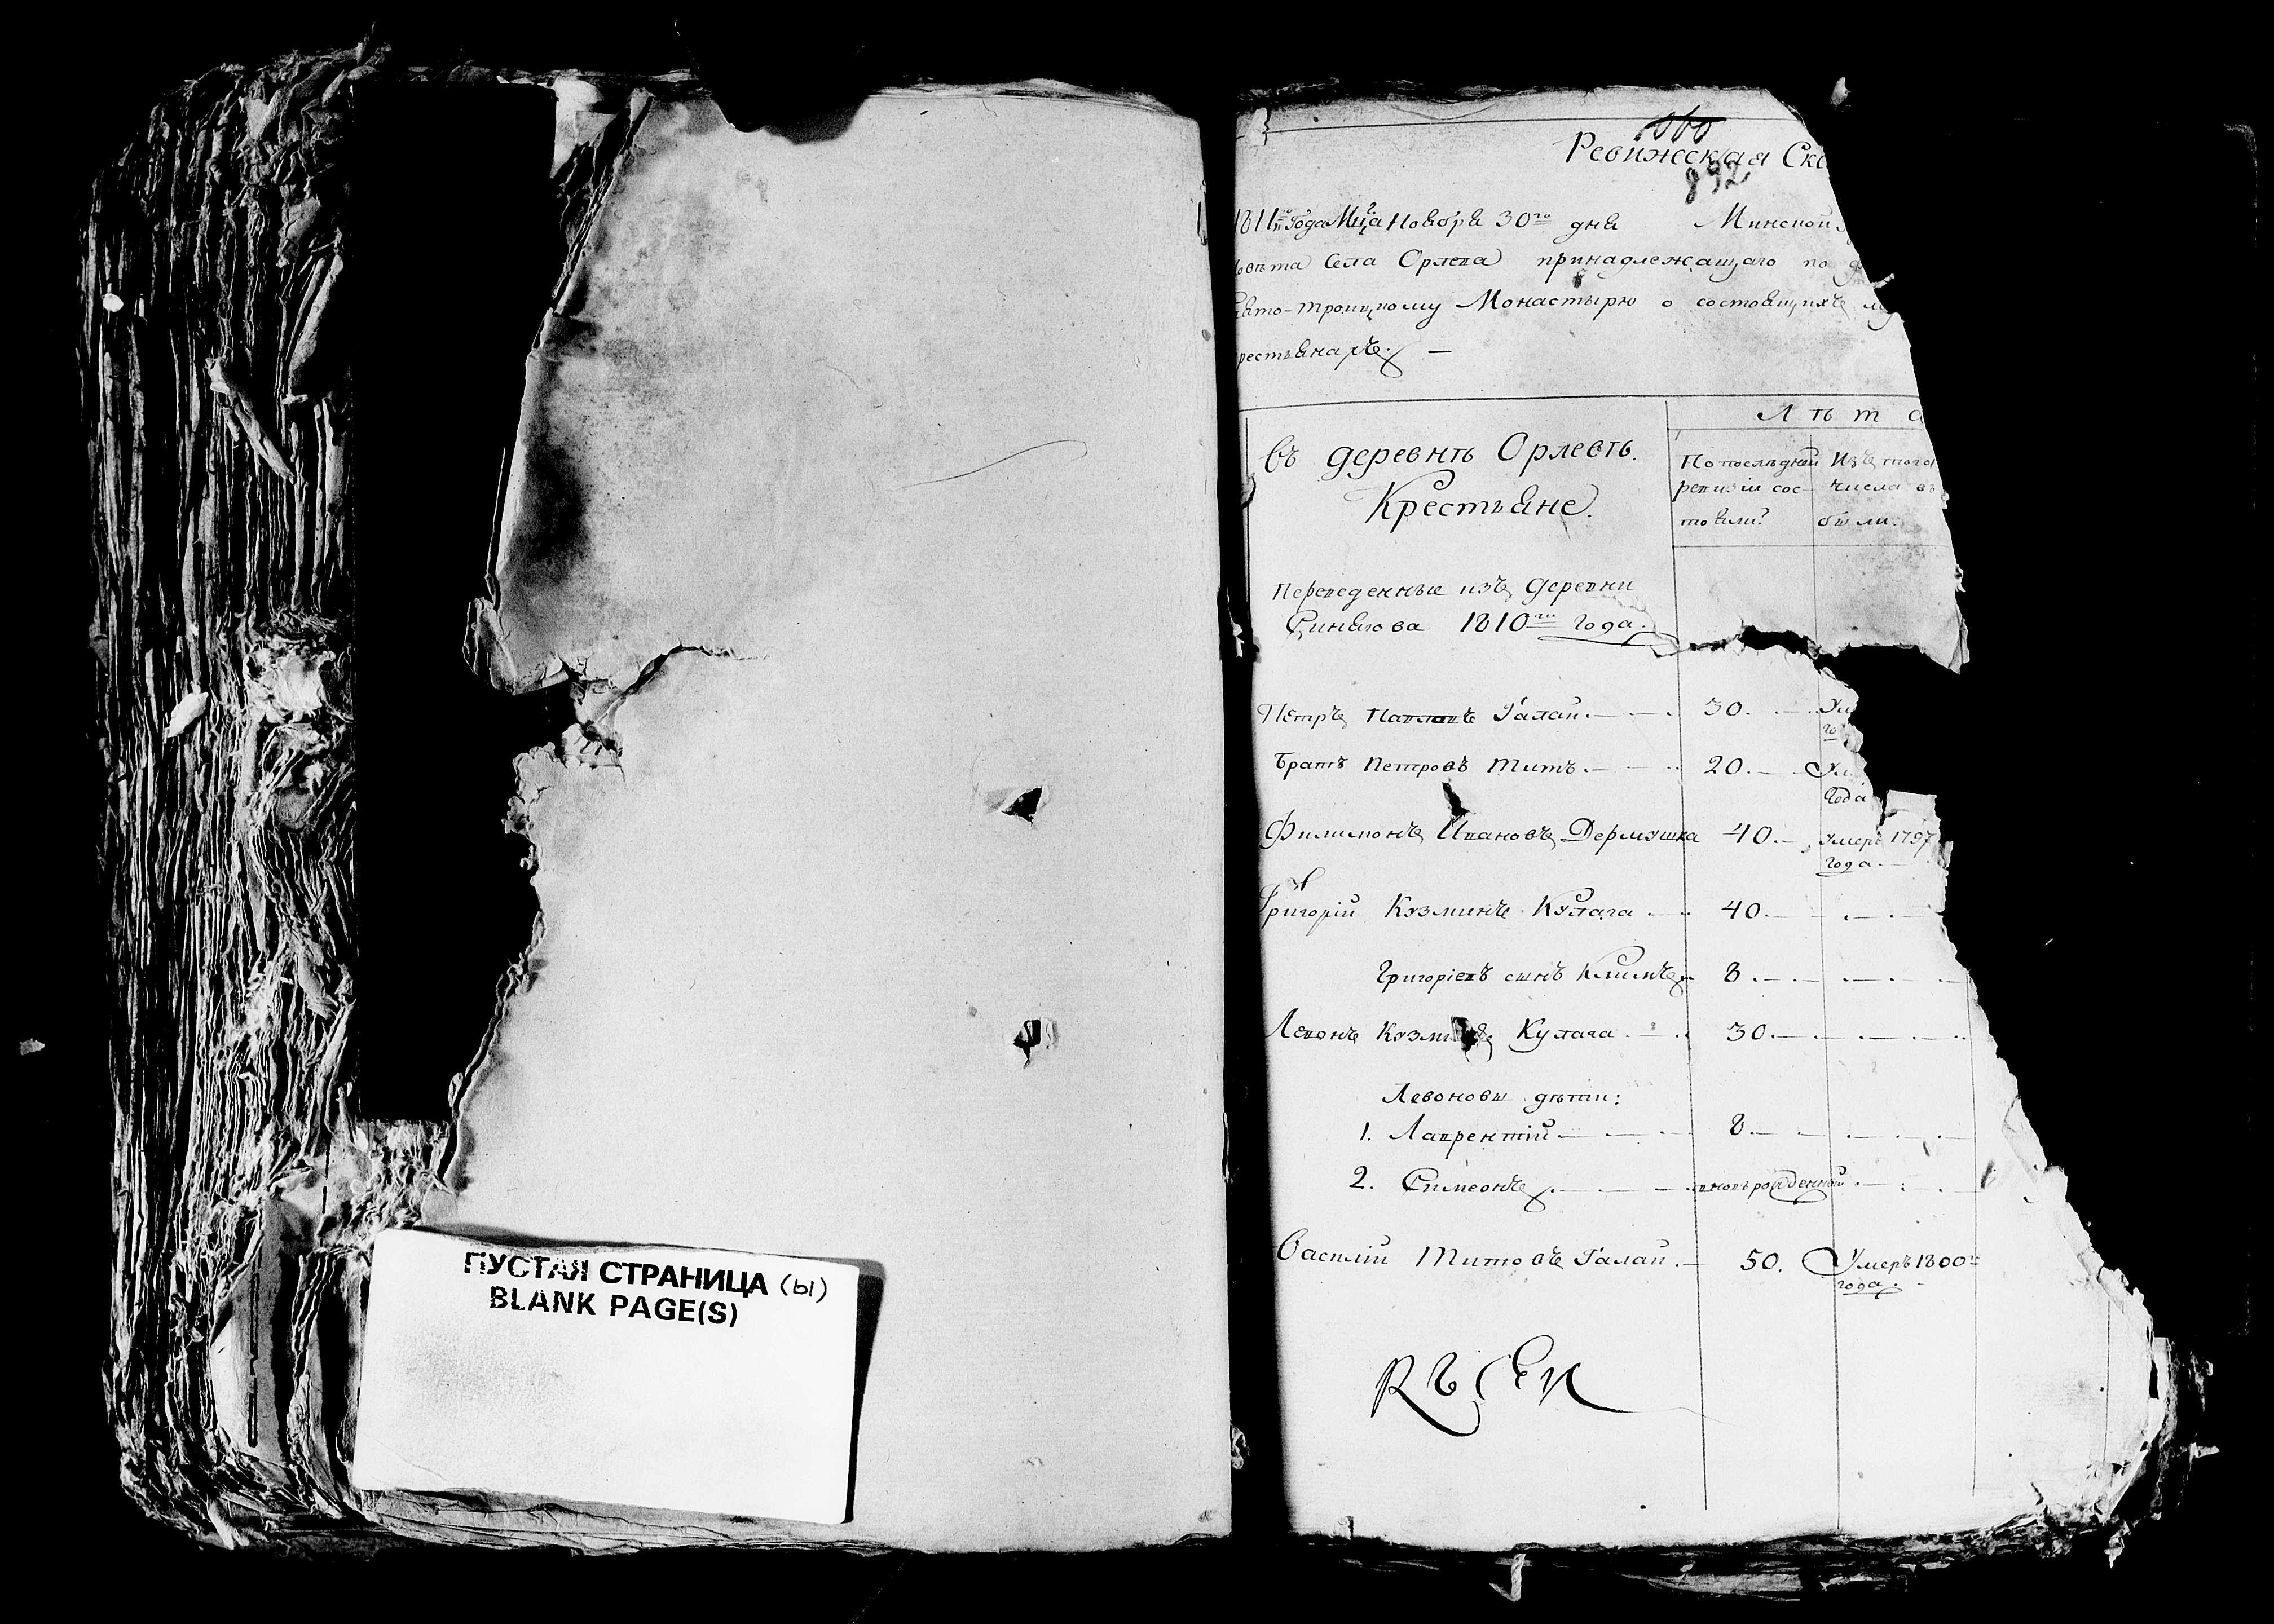 ПУСТАЯ СТРАНИЦА (ы)
BLANK PAGE(S)
892
Ревижская Ск
1811го Года Мца Ноября 30го дня Минской
Села Орлева принадлежащаго по
Троицкому Монастырю о состоящихъ
рестьянахъ. —
Въ деревнѣ Орлевѣ.
Крестьяне.
Лѣта
По последней
ревизіи сос-
тояли?
Изъ того
числа вы
были.
Переведенные изъ деревни
Синягова 1810го года.
Петръ Павловъ Галай. 30. Ум
го
Братъ Петровъ Титъ. 20. Ум
Года
Филимонъ Ивановъ Дермушка 40. Умеръ 1797
года.
Григорій Кузминъ Кулага 40.
Григоріевъ сынъ Климъ 8.
Левонъ Кузми Кулага 30.
Левоновы дѣти:
1. Лаврентій 8.
2. Симеонъ вновьрожденный
Василій Титовъ Галай. 50. Умеръ 1800го
года.